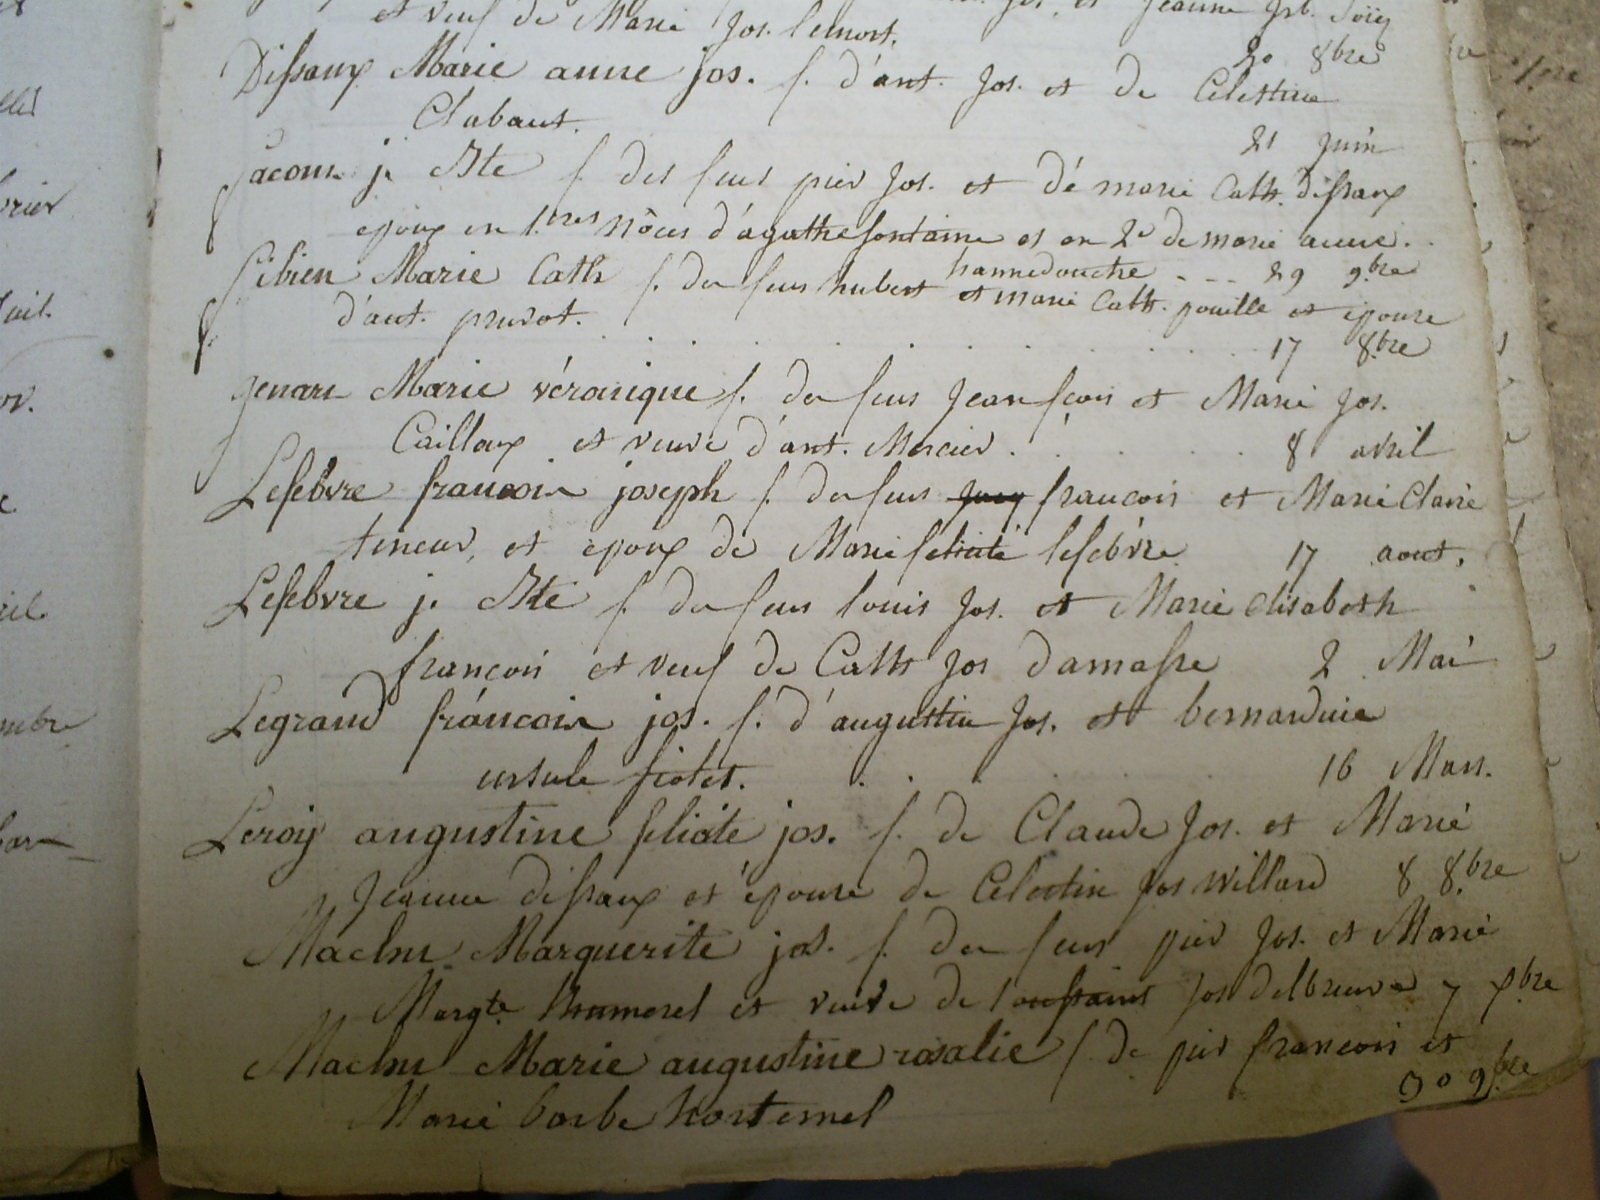 et veuf de Marie Jos. lemort. 20 8bre
Dissaux Marie anne jos. f. d'ant. Jos. et de Celestine
Clabaut. 21 juin
jacour j. Bte f. des feus pier Jos. et dé marie Cath. dissaux
epoux en 1.res nôces d'agathe fontaine et en 2e de marie anne.
hannedouche - - - 29 9.bre
libien Marie Cath f. de feus hubert et marie Cath. pouille et epouse
d'ant. pruvot. 17 8.bre
genart Marie véronique f. de feus Jean fcois et Marie Jos.
Cailloux et veuve d'ant. Mercier . . 8 avril
Lefebvre francois joseph f. de feus francois et Marie Claire
teneur, et epoux de Marie felicité lefebvre 17 aout.
Lefebvre j. Bte f. de feus louis Jos. et Marie elisabeth
francois et veuf de Cath Jos damasse 2 Mai
Legrand francois jos. f. d'augustin Jos. et bernardine
ursule fiolet. 16 Mars.
Leroij augustine felicite jos. f. de Claude Jos. et Marie
Jeanne dissaux et epouse de Celestin jos Willard 8 8.bre
Machu Marguerite jos. f. de feus pier Jos. et Marie
Margte. et veuve de toussaint jos delbreuve 7 bre
Machu Marie augustine rosalie f de pier francois et
30 9.bre
Marie barbe